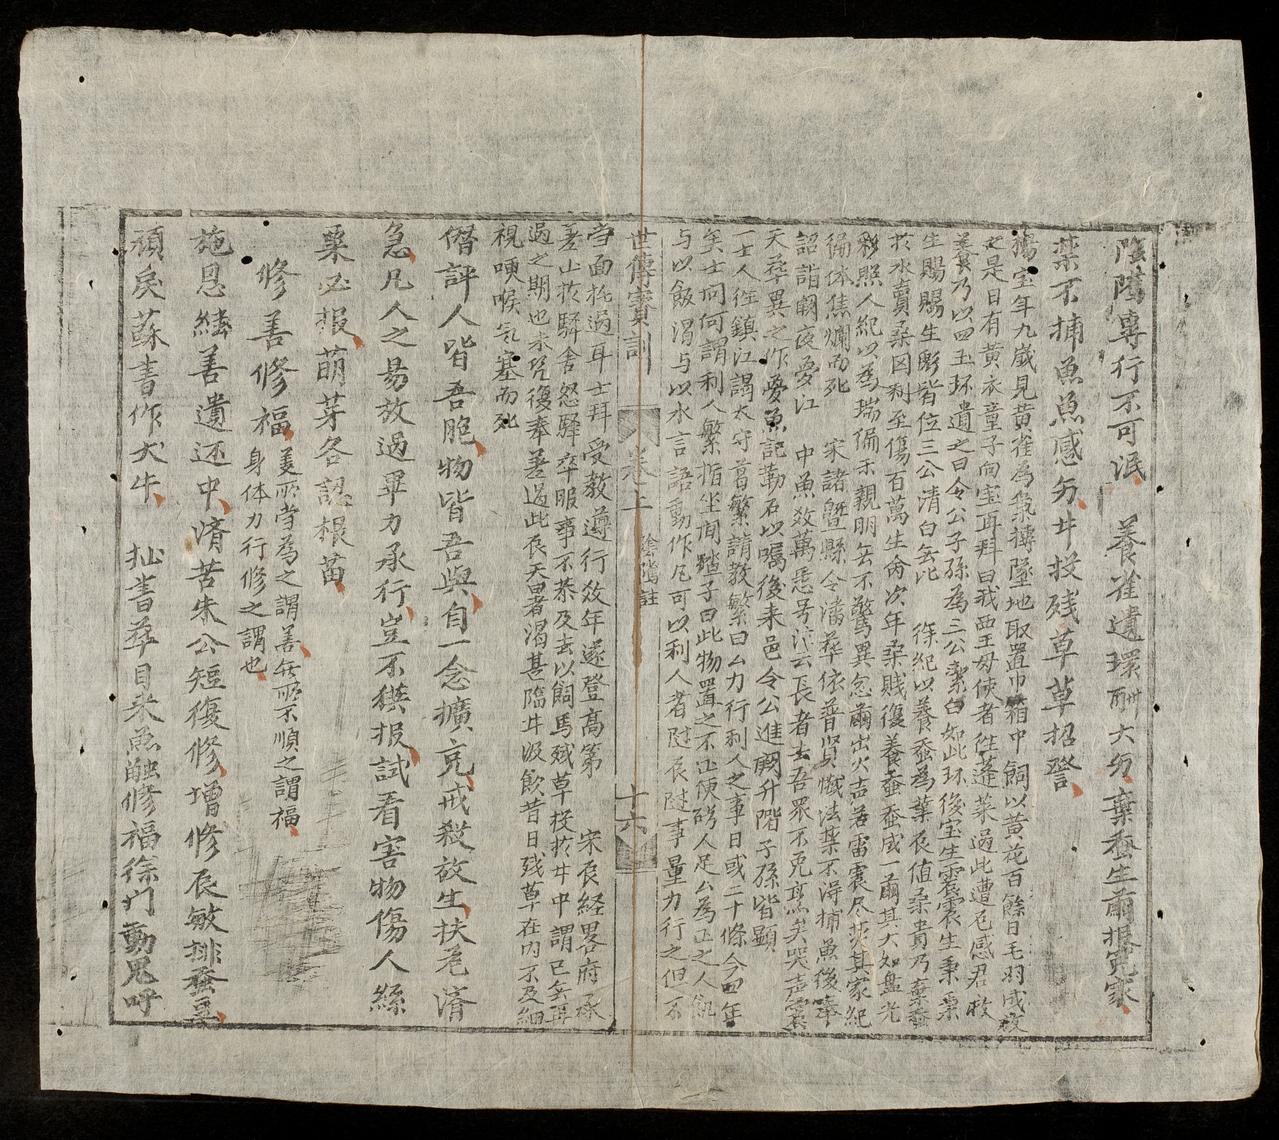 陰隲專行不可泯　養雀遺環酬大另棄蚕生繭報冤家
禁不捕魚魚感另井投残草草招登
楊宝年九歲見黄雀為梟摶墜地取置巾箱中飼以黄花百餘日毛羽成放
之是日有黄衣童子向宝再拜曰我西王母使者往蓬萊過此遭厄感君救
養乃以四玉环遺之曰令公子孫為三公潔白如此环後宝生震震生秉秉
生賜賜生彪皆位三公清白無比　徐紀以養蚕為葉辰值桑貴乃棄蚕
於水賣桑因利至傷百萬生命次年桑賎復養蚕蚕成一繭其大如盤光
彩照人紀以為瑞徧示親朋無不驚異忽繭出火吉若雷震尽焚其家紀
徧体焦爛而死　宋諸暨縣令潘葬依普賢懺法禁不得捕魚後奉
詔詣朝夜憂江　中魚数萬悉号泣云長者去吾眾不免烹矣哭声震
天葬異之作憂魚記勒石以嘱後来邑令公進爵升階子孫皆顯
一士人徃鎮江謁太守葛繁請教繁曰厶力行利人之事日或二十條今四年
矣士问何謂利人繁指坐间踏子曰此物置之不正便碍人足厶為正之人飢
与以飯渴与以水言語動作凡可以利人者隨辰隨事量力行之但不
世傳寳訓　卷上　陰隲註　十六
当面拓過耳士拜受教遵行数年遂登高第　宋辰経畧府承
差山於驛舍怒驛卒服事不恭及去以飼馬残草投於井中謂已無再
過之期也不况復奉差過此辰天暑渴甚臨井汲飲昔日残草在内不及細
視哽喉气塞而死
僭評人皆吾胞物皆吾與自一念擴充戒殺放生扶危濟
急凡人之易放過畢力承行豈不獲报試看害物傷人絲
粟必报萌芽各認根苗
修善修福　羙所当為之謂善無所不順之謂福
身体力行修之謂也
施恩繡善遺还中濟苦朱公短復修增修辰敏排蚕票
頑戾蘇書作大牛　拙書葬目来魚触修福徐门動鬼呼